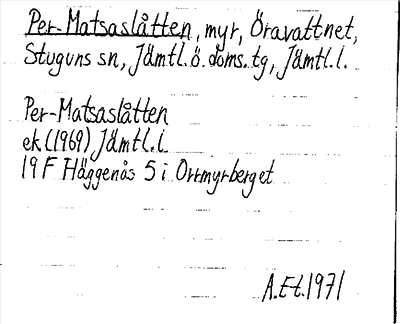 Per-Matsaslåtten, myr, Öravattnet,
Stuguns sn, Jämtl. ö. doms. tg, Jämtl. l.
Per-Matsaslåtten
ek (1969) Jämtl. l.
19 F Häggenås 5 i Orrmyrberget
A.E-t. 1971